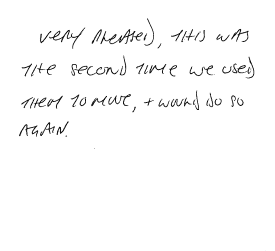 VERY PLEASED, THIS WAS
THE SECOND TIME WE USED
THEM TO MOVE, + WOULD DO SO
AGAIN.